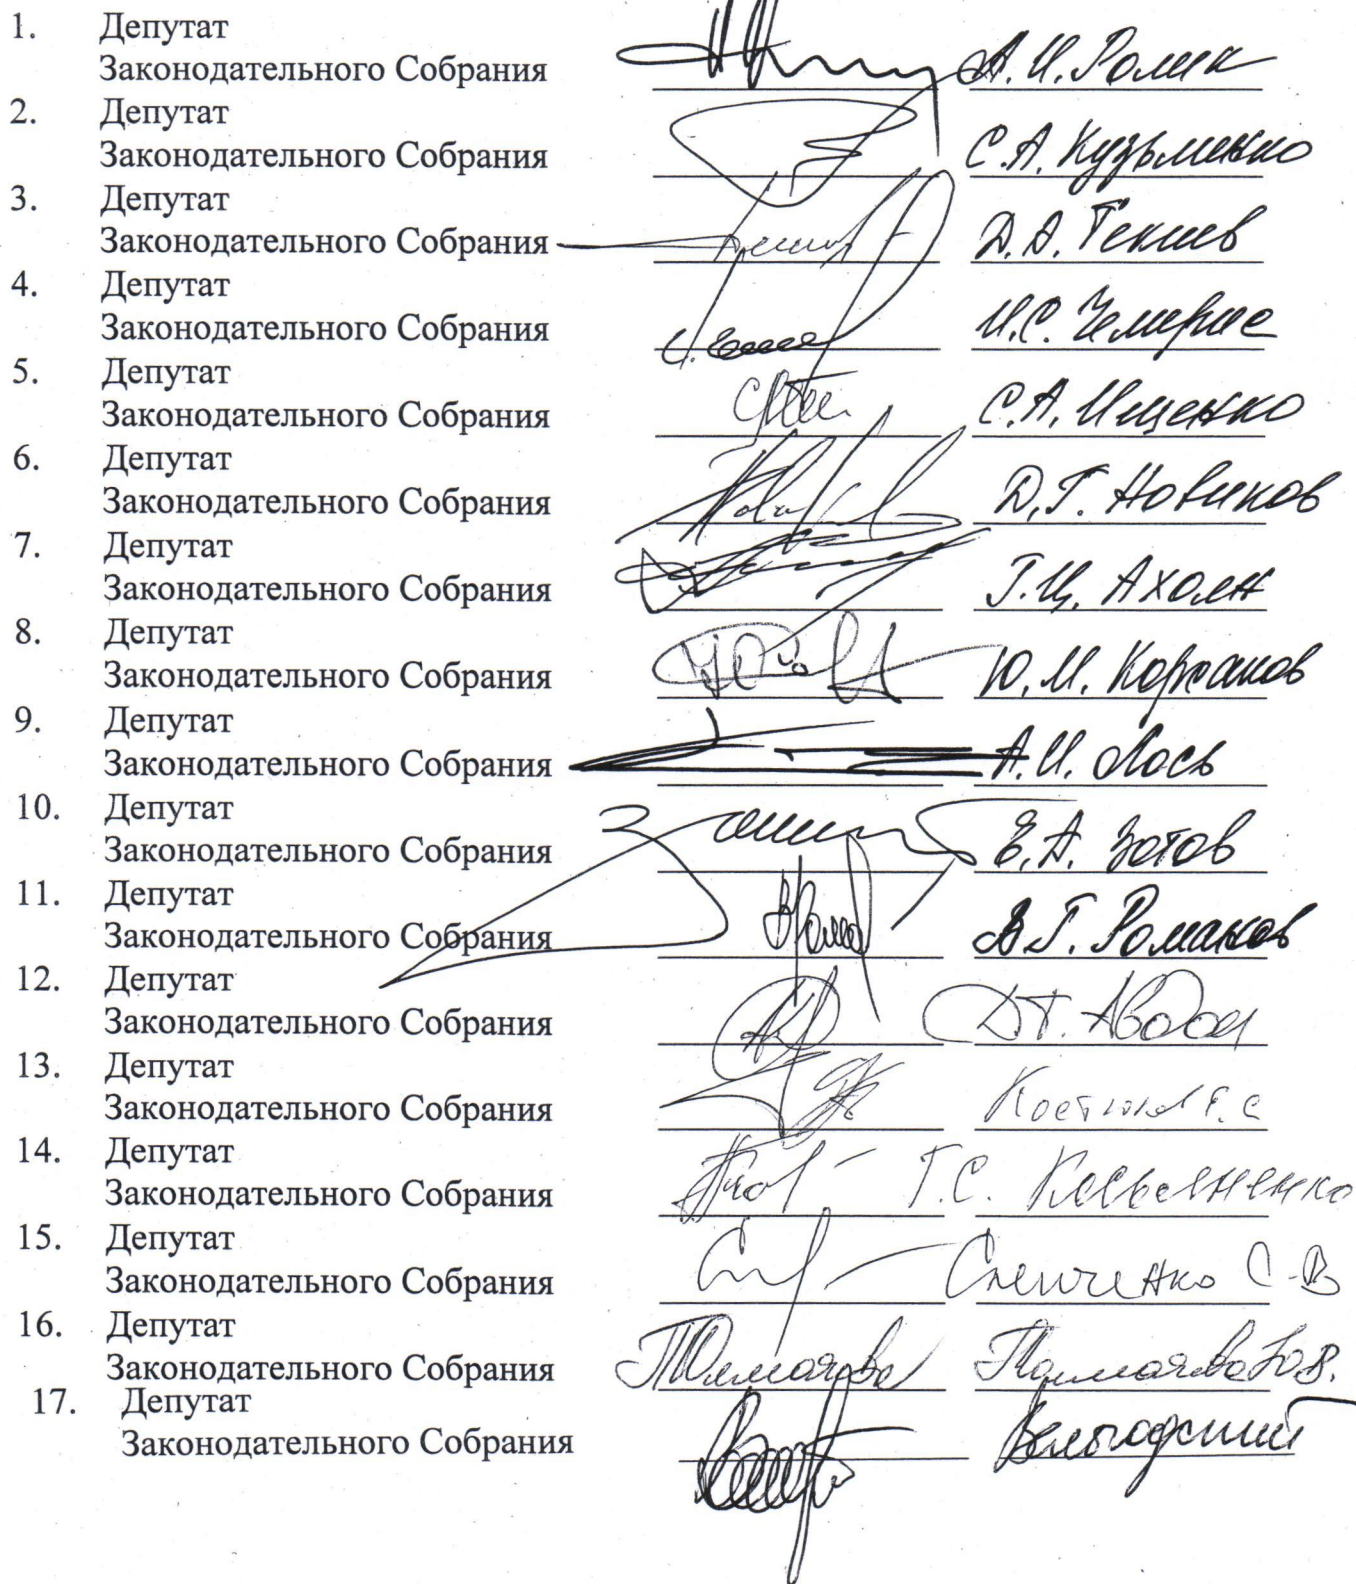 1. Депутат
Законодательного Собрания А.И. Ролик
2. Депутат
Законодательного Собрания С.А. Кузьменко
3. Депутат
Законодательного Собрания Д.А. Текиев
4. Депутат
Законодательного Собрания И.С. Чемерис
5. Депутат
Законодательного Собрания С.А. Ищенко
6. Депутат
Законодательного Собрания Д.Г. Новиков
7. Депутат
Законодательного Собрания Г.Ц. Ахоян
8. Депутат
Законодательного Собрания Ю.М. Корсаков
9. Депутат
Законодательного Собрания А.И. Лось
10. Депутат
Законодательного Собрания Е.А. Зотов
11. Депутат
Законодательного Собрания В.Г. Романов
12. Депутат
Законодательного Собрания
13. Депутат
Законодательного Собрания
14. Депутат
Законодательного Собрания Г.С.
15. Депутат
Законодательного Собрания Слепченко С.В
16. Депутат
Законодательного Собрания Толмачева Ю.В.
17. Депутат
Законодательного Собрания Вельгодский